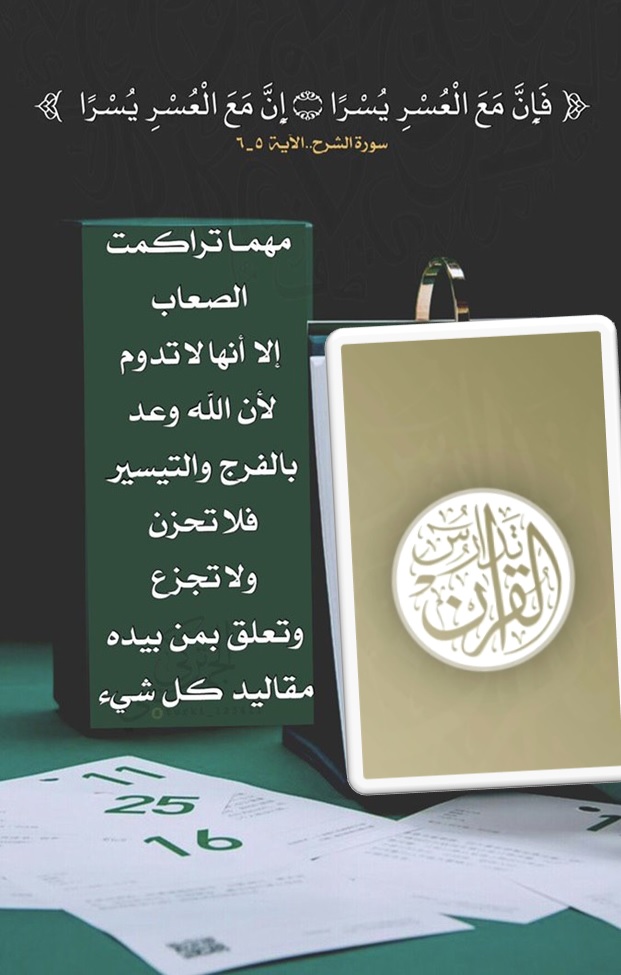 ﴿ فَإِنَّ مَعَ الْعُسْرِ يُسْرًا ۝ إِنَّ مَعَ الْعُسْرِ يُسْرًا ﴾
سورة الشرح..الآية ٥_٦
مهما تراكمت
الصعاب
إلا أنها لا تدوم
لأن اللَّه وعد
بالفرج والتيسير
فلا تحزن
ولا تجزع
وتعلق بمن بيده
مقاليد كل شيء
تَدَارُسُ
القرآن
11
25
16
1